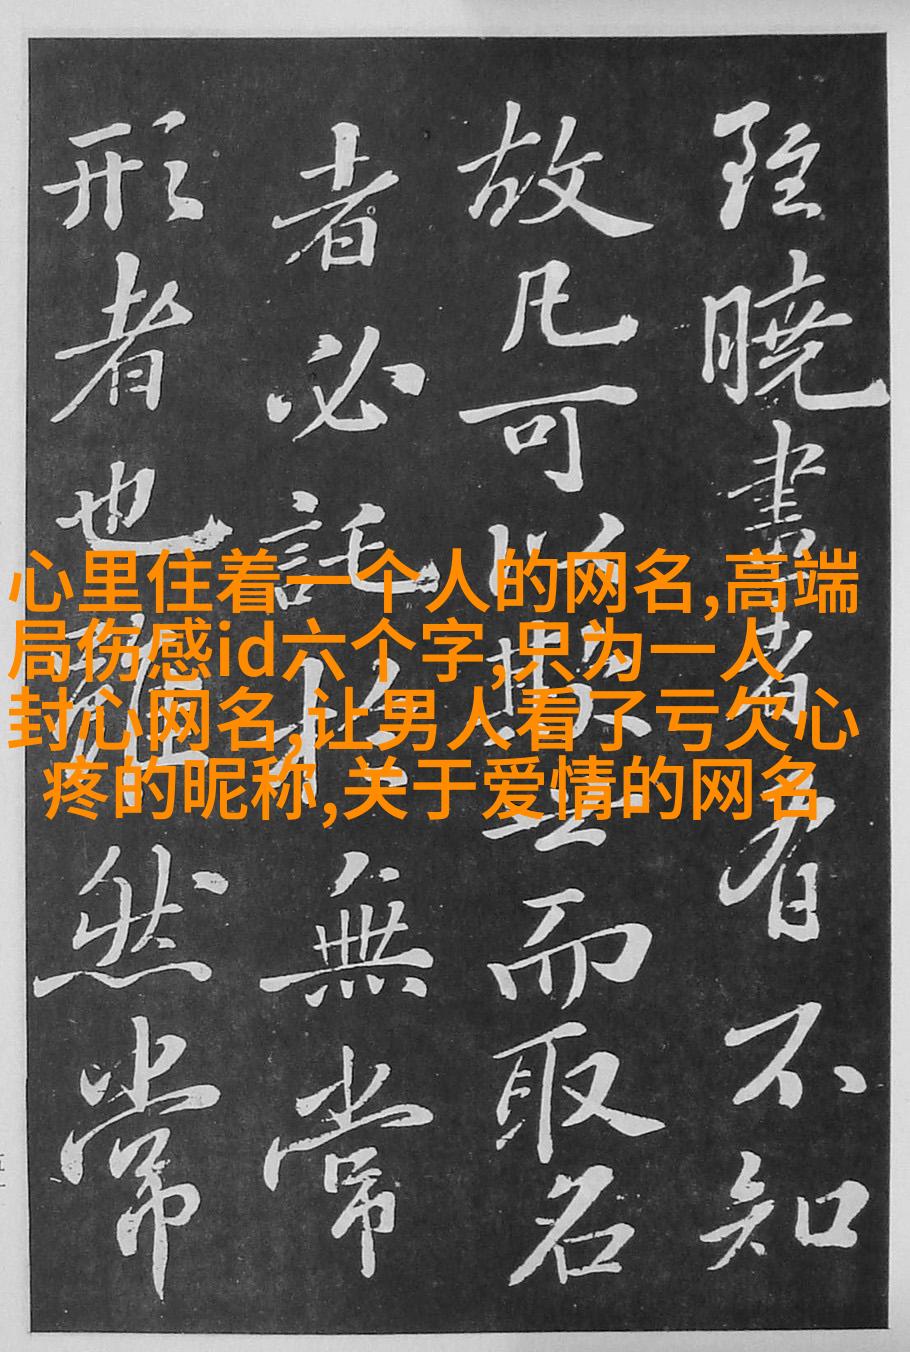 雖曉畫者有不知
故凡可以欺世而取名
者必託於無常
形者也雖然常
心里住着一个人的网名,高端
局伤感id六个字,只为一人
封心网名,让男人看了亏欠心
疼的昵称,关于爱情的网名